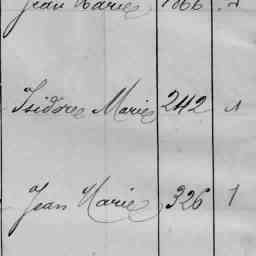 Jean Marie 1866
Isidore Marie 242 1
Jean Marie 326 1